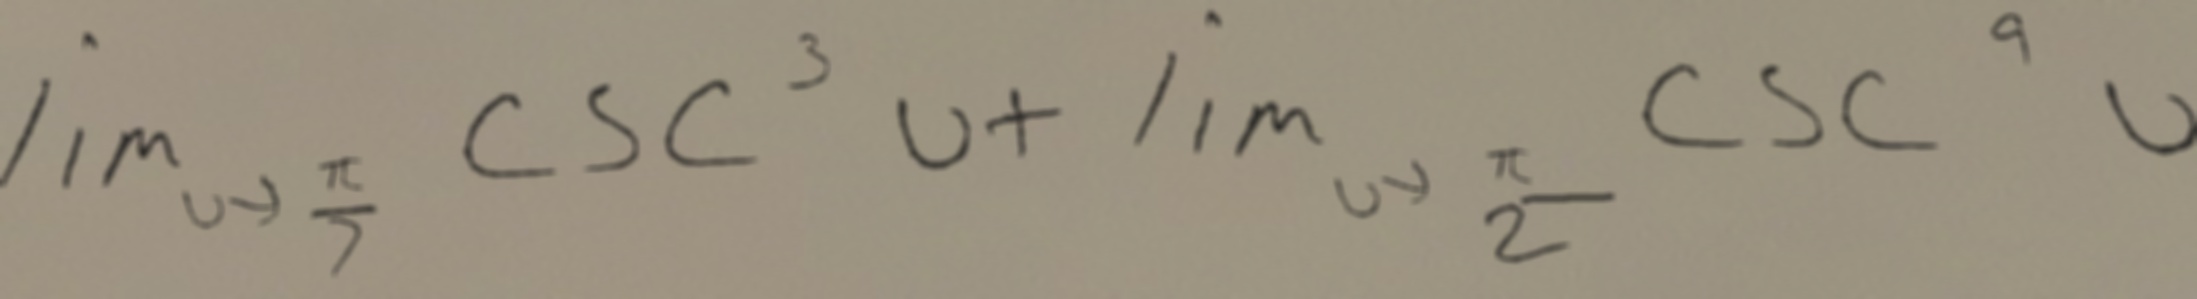 \lim_{u \to \frac{\pi}{7}} \csc^3 u + \lim_{u \to \frac{\pi}{2}} \csc^9 u